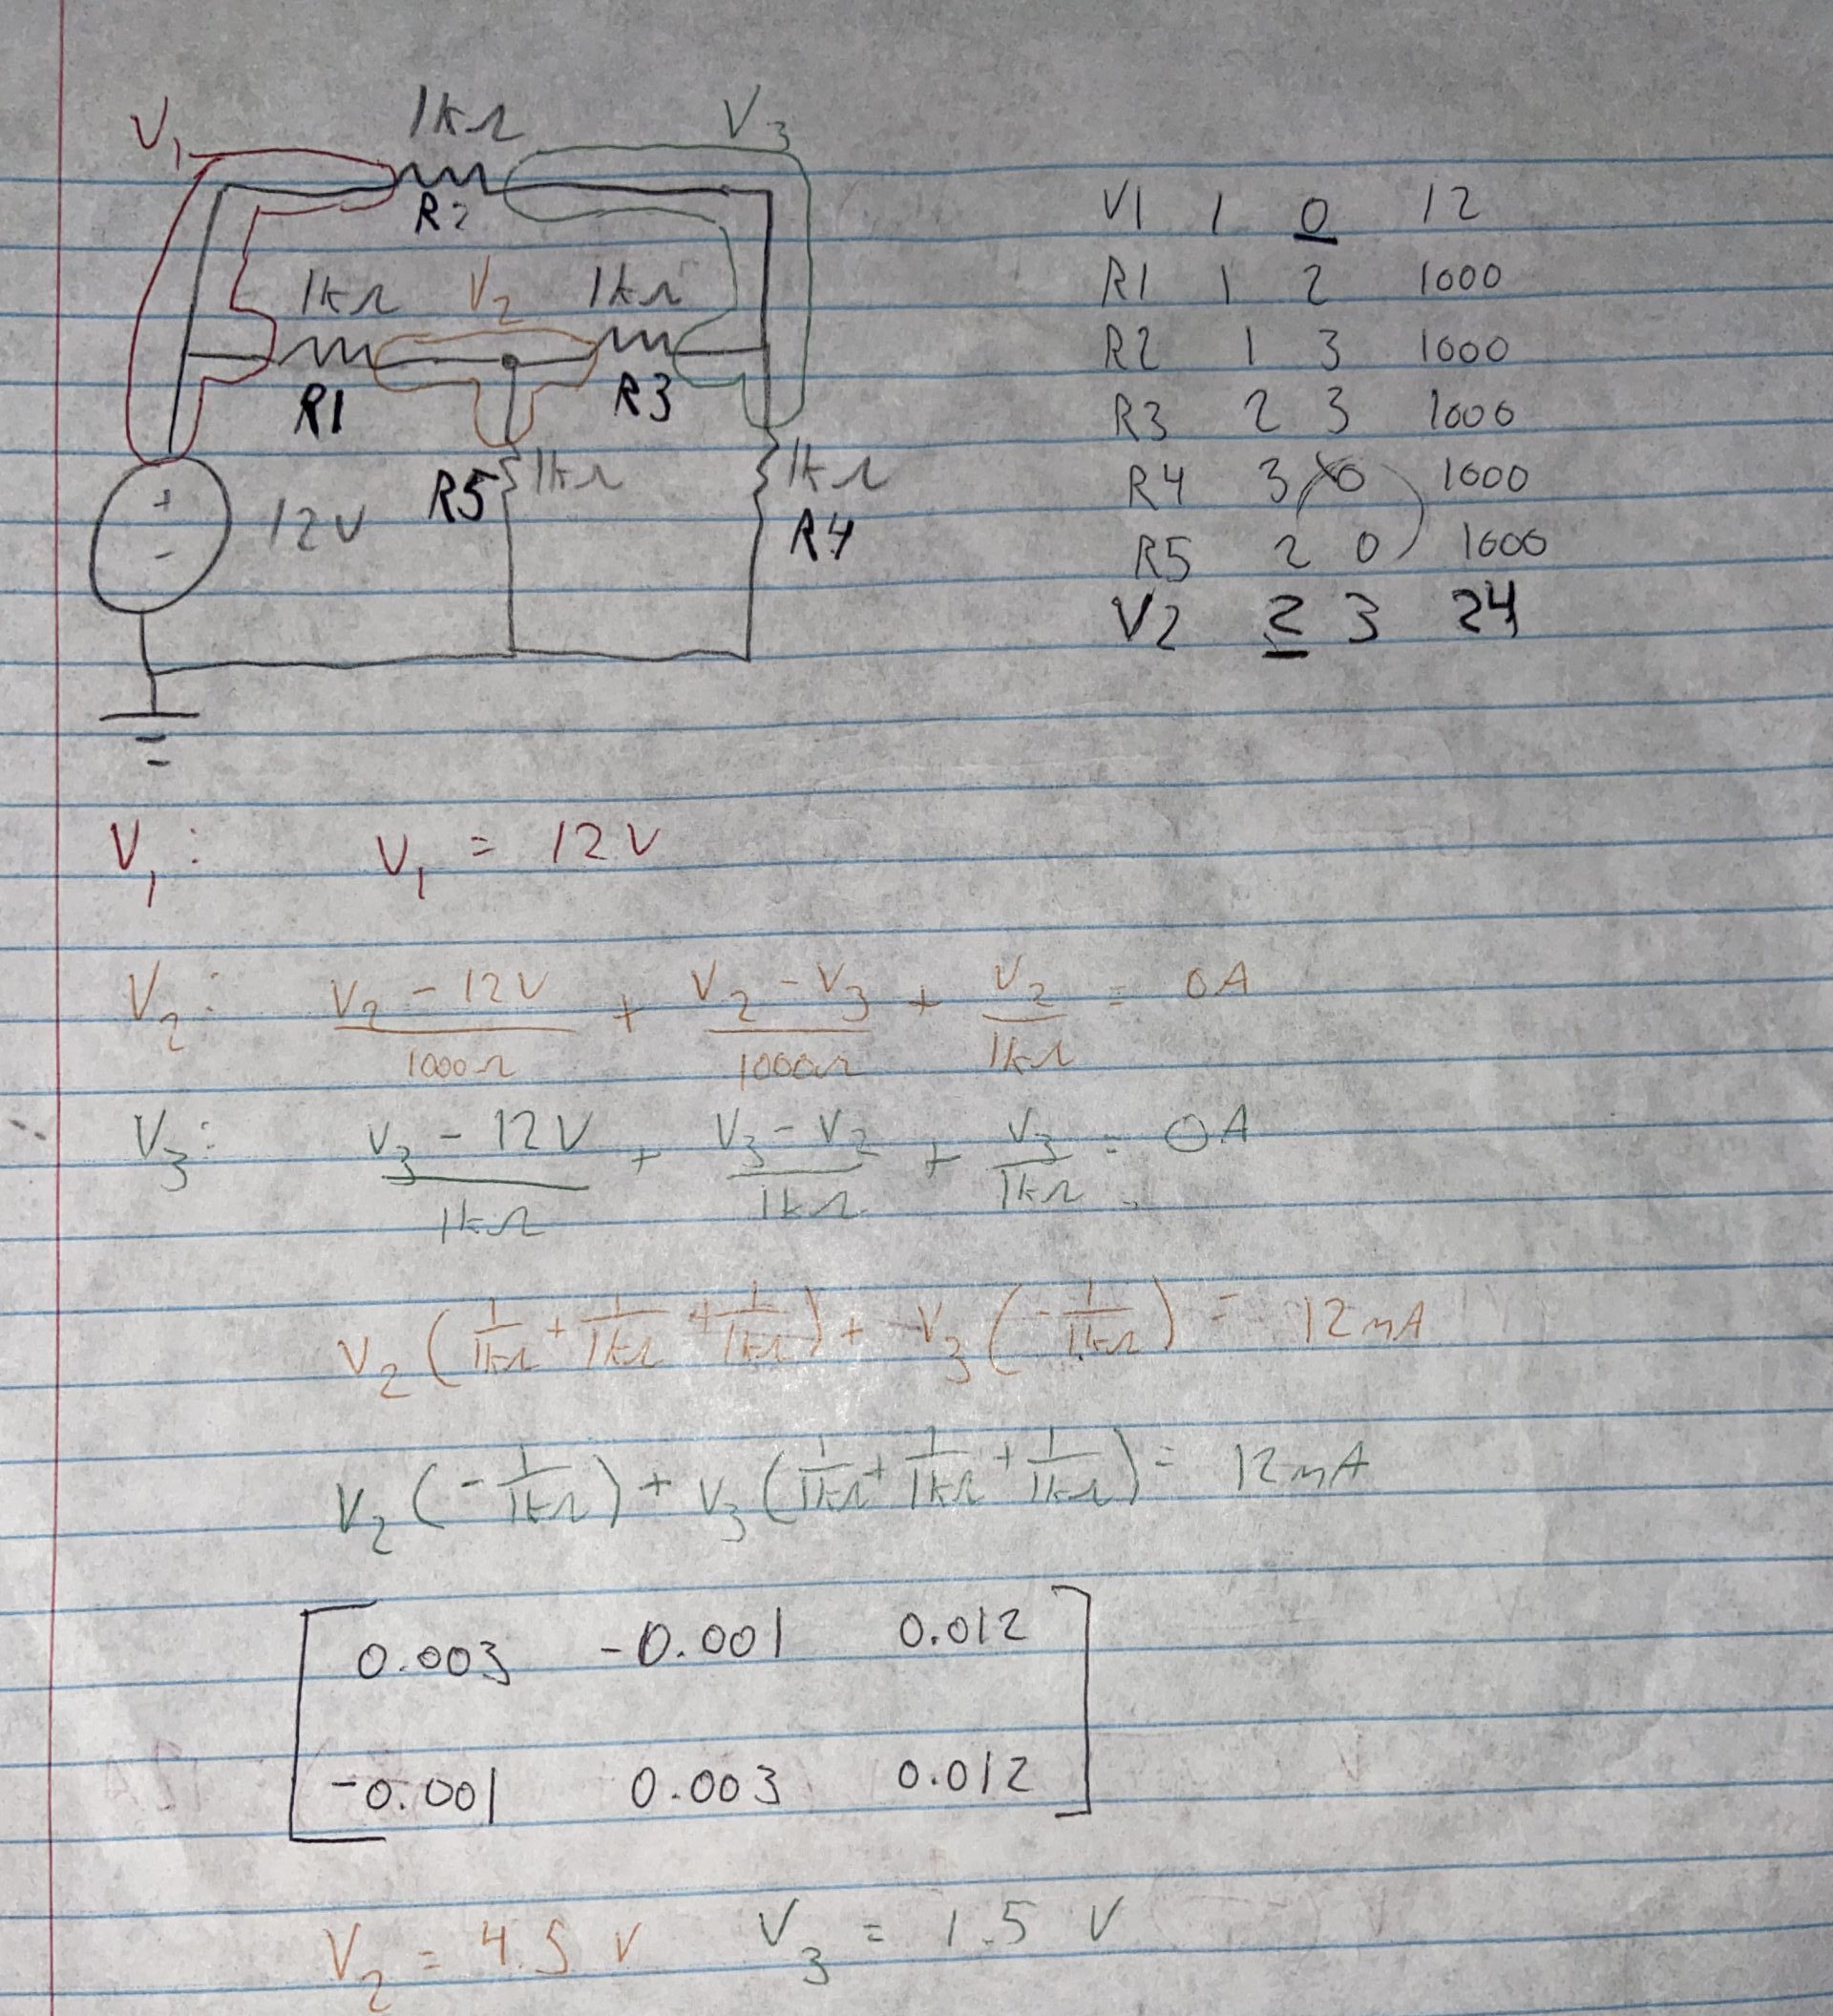 V₁ 1kΩ V₃
R2
1kΩ V₂ 1kΩ
R1 R3
+ - 12V R5 1kΩ 1kΩ R4
V1 1 0 12
R1 1 2 1000
R2 1 3 1000
R3 2 3 1000
R4 3 0 1000
R5 2 0 1000
V2 2 3 24
V₁: V₁ = 12V
V₂: (V₂ - 12V)/1000Ω + (V₂ - V₃)/1000Ω + V₂/1kΩ = 0A
V₃: (V₃ - 12V)/1kΩ + (V₃ - V₂)/1kΩ + V₃/1kΩ = 0A
V₂ (1/1kΩ + 1/1kΩ + 1/1kΩ) + V₃ (-1/1kΩ) = 12mA
V₂ (-1/1kΩ) + V₃ (1/1kΩ + 1/1kΩ + 1/1kΩ) = 12mA
0.003 -0.001 0.012
-0.001 0.003 0.012
V₂ = 4.5 V V₃ = 1.5 V